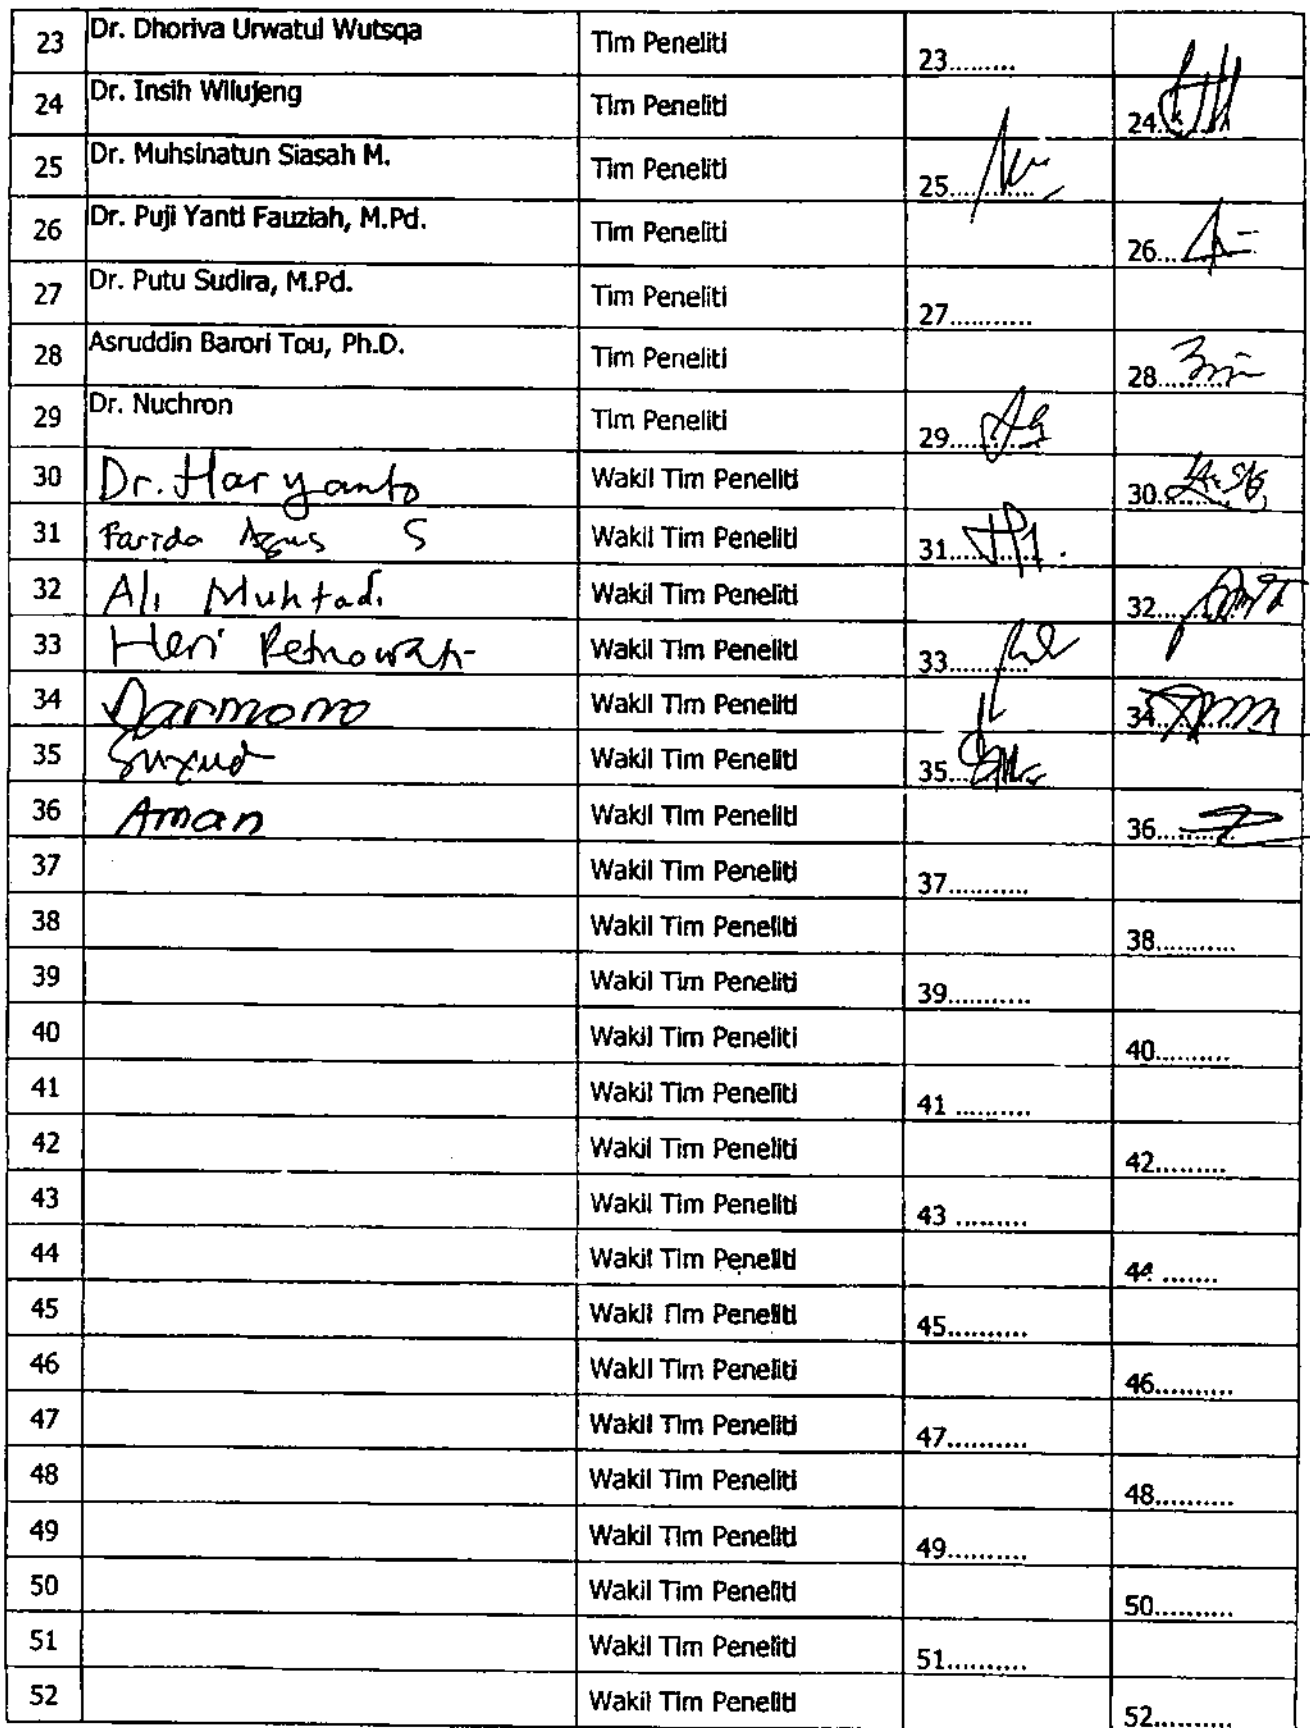 23 Dr. Dhoriva Urwatul Wutsqa Tim Peneliti 23.........
24 Dr. Insih Wilujeng Tim Peneliti 24.
25 Dr. Muhsinatun Siasah M. Tim Peneliti 25............
26 Dr. Puji Yanti Fauziah, M.Pd. Tim Peneliti 26...
27 Dr. Putu Sudira, M.Pd. Tim Peneliti 27...........
28 Asruddin Barori Tou, Ph.D. Tim Peneliti 28..........
29 Dr. Nuchron Tim Peneliti 29..........
30 Dr. Haryanto Wakil Tim Peneliti 30..........
31 Farida Agus S Wakil Tim Peneliti 31............
32 Ali Muhtadi Wakil Tim Peneliti 32.........
33 Heri Retnowati Wakil Tim Peneliti 33...........
34 Darmono Wakil Tim Peneliti 34...........
35 Wakil Tim Peneliti 35...
36 Aman Wakil Tim Peneliti 36..........
37 Wakil Tim Peneliti 37...........
38 Wakil Tim Peneliti 38...........
39 Wakil Tim Peneliti 39...........
40 Wakil Tim Peneliti 40..........
41 Wakil Tim Peneliti 41 ..........
42 Wakil Tim Peneliti 42.........
43 Wakil Tim Peneliti 43 .........
44 Wakil Tim Peneliti 44 .......
45 Wakil Tim Peneliti 45..........
46 Wakil Tim Peneliti 46..........
47 Wakil Tim Peneliti 47..........
48 Wakil Tim Peneliti 48..........
49 Wakil Tim Peneliti 49..........
50 Wakil Tim Peneliti 50..........
51 Wakil Tim Peneliti 51..........
52 Wakil Tim Peneliti 52..........